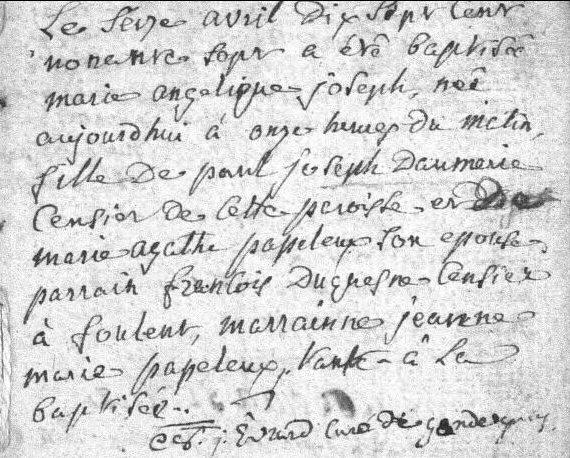 Le seize avril dix sept cent
nonante sept a été baptisée
marie angelique joseph, née
aujourdhui à onze heures du matin,
fille de paul joseph Daumerie
Censier de cette paroisse et de
marie agathe papeleux son epouse,
parrain francois Duquesne Censier
à foulent, marrainne jeanne
marie papeleux, tante à la
baptisée..
j: Evrard Curé de